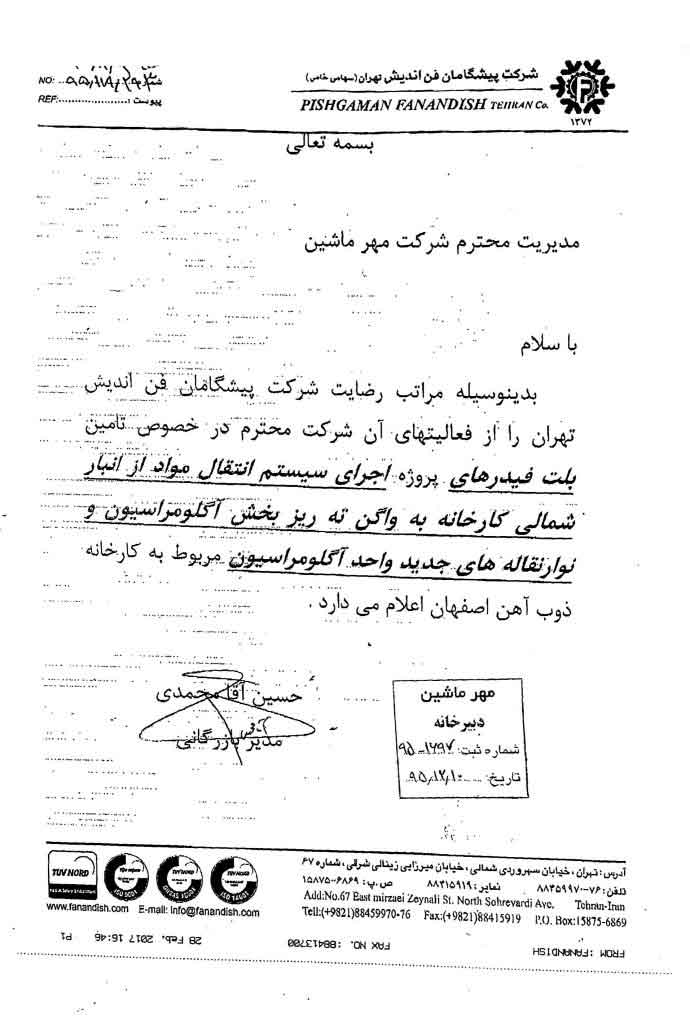 شرکت پیشگامان فن اندیش تهران (سهامی خاص)
PISHGAMAN FANANDISH TEHRAN Co.
۱۳۷۲
NO:
REF: پیوست :
بسمه تعالی
مدیریت محترم شرکت مهر ماشین
با سلام
بدینوسیله مراتب رضایت شرکت پیشگامان فن اندیش
تهران را از فعالیتهای آن شرکت محترم در خصوص تامین
بلت فیدرهای پروژه اجرای سیستم انتقال مواد از انبار
شمالی کارخانه به واگن ته ریز بخش آگلومراسیون و
نوارنقاله های جدید واحد آگلومراسیون مربوط به کارخانه
ذوب آهن اصفهان اعلام می دارد .
حسین آقا محمدی
مدیر بازرگانی
مهر ماشین
دبیرخانه
شماره ثبت: ۹۵-۱۲۹۷
تاریخ: ۹۵,۱۲,۱۰
TUV NORD
ISO 9001
OHSAS 18001
ISO 14001
آدرس: تهران، خیابان سهروردی شمالی، خیابان میرزایی زینالی شرقی، شماره ۶۷
تلفن: ۷۶-۸۸۴۵۹۹۷۰ نمابر: ۸۸۴۱۵۹۱۹ ص.پ: ۶۸۶۹-۱۵۸۷۵
Add:No.67 East mirzaei Zeynali St. North Sohrevardi Ave. Tehran-Iran
Tell:(+9821)88459970-76 Fax:(+9821)88415919 P.O. Box:15875-6869
www.fanandish.com E-mall: info@fanandish.com
FROM :FANANDISH FAX NO. :88413700 28 Feb. 2017 16:46 P1